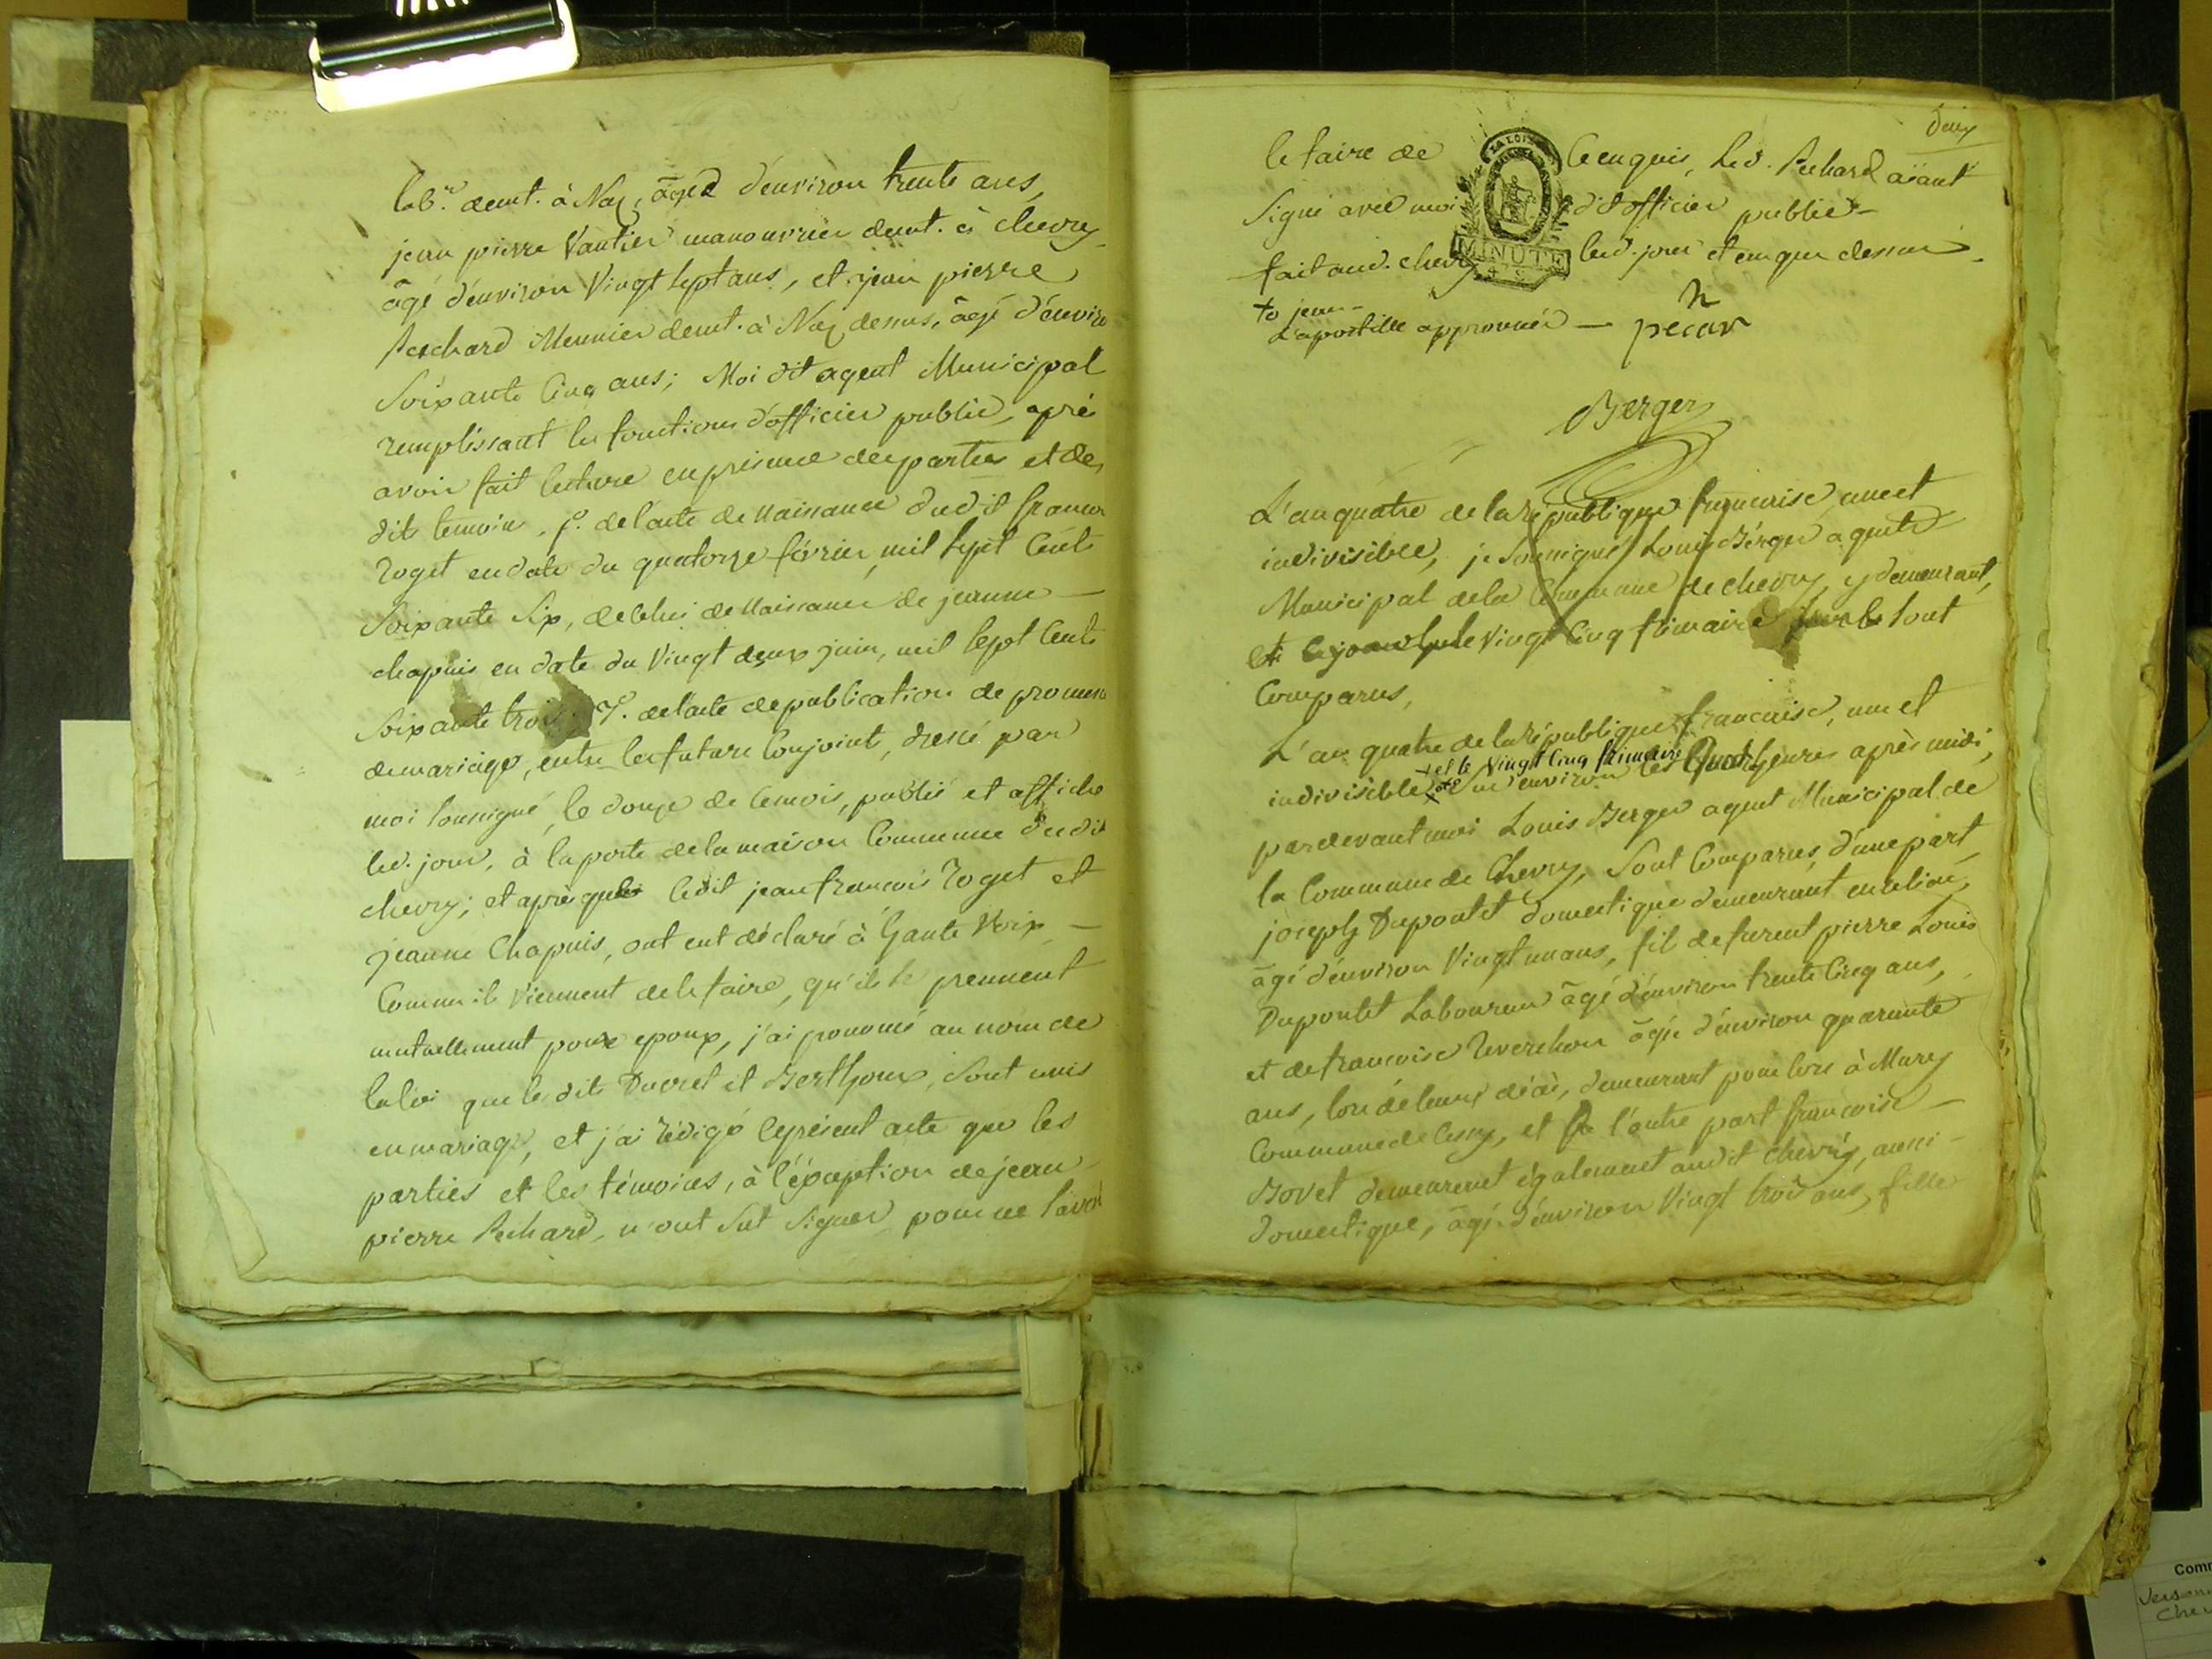 lab.r demt. à Naz, âgéd d'environ trente ans,
jean pierre Vautier manouvrier demt. à chevry
âgé d'environ Vingt sept ans, et jean pierre
Pechard Meunier demt. à Naz dessus, âgé d'enviro
Soixante Cinq ans; Moi dit agent Municipal
remplissant les fonctions d'officier public, aprè
avoir fait lecture en présence des parties et des
dits temoin, 1°. de l'acte de Naissance dudit francois
roget en date du quatorze février mil sept Cent
Soixante Six, de Celui de Naissance de jeanne —
chapuis en date du Vingt deux juin, mil sept Cent
Soixante trois, 2°. de l'acte de publication de promess
de mariage, entre les future Conjoint, dressé par
moi soussigné, le douze de Cemois, publié et affiché
led. jour, à la porte de la maison Commune dudit
chevry; et après que ledit jean francois roget et
jeanne Chapuis, ont eut déclaré à haute Voix —
Comme ils Viennent de le faire, qu'ils se prennent
mutuellement pour epoux, j'ai prononcé au nom de
la loi que le dits Ducret et Berthoux, Sont unis
en mariage, et j'ai rédigé le présent acte que les
parties et les témoins, à l'éxception de jean
pierre Pechard, n'ont Sut Signer pour ne Savoi
deux
le faire de Ce enquis, Led. Pechard aïant
Signé avec moi dit officier public —
fait aud. chevry led. jour et en que dessus.
LA LOI
MINUTE
+ jean —
L'apostille approuvée — pecar
Berger
L'an quatre de la république francaise, une et
indivisible, je Soussigné Louis Berger agent
Municipal de la Commune de chevry, y demeurant,
et le Vingt Cinq frimaire Sont
Comparus,
L'an quatre de la république francaise, une et
+ et le Vingt Cinq frimaire
indivisible, Sur environ les quatre heures après midi,
par devant moi Louis Berger agent Municipal de
la Commune de Chevry, Sont Comparus, d'une part,
joseph Dupontet domestique demeurant en
âgé d'environ Vingt un ans, fils de furent pierre Louis
Dupontet Laboureur âgé d'environ trente Cinq ans,
et de francoise Reverchon âgée d'environ quarante
ans, lors de leurs décès, demeurant pour lors à Mury
Commune de Cessy, et de l'autre part francoise —
Bovet demeurent également audit chevry, aussi —
domestique, âgé d'environ Vingt trois ans, fille
Comm
Chev